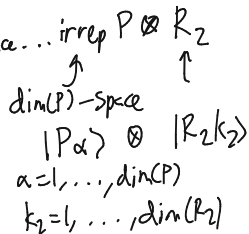 ce... irrep P ⊗ R₂
dim(P)-space
|Pα⟩ ⊗ |R₂k₂⟩
α=1,...,dim(P)
k₂=1,...,dim(R₂)